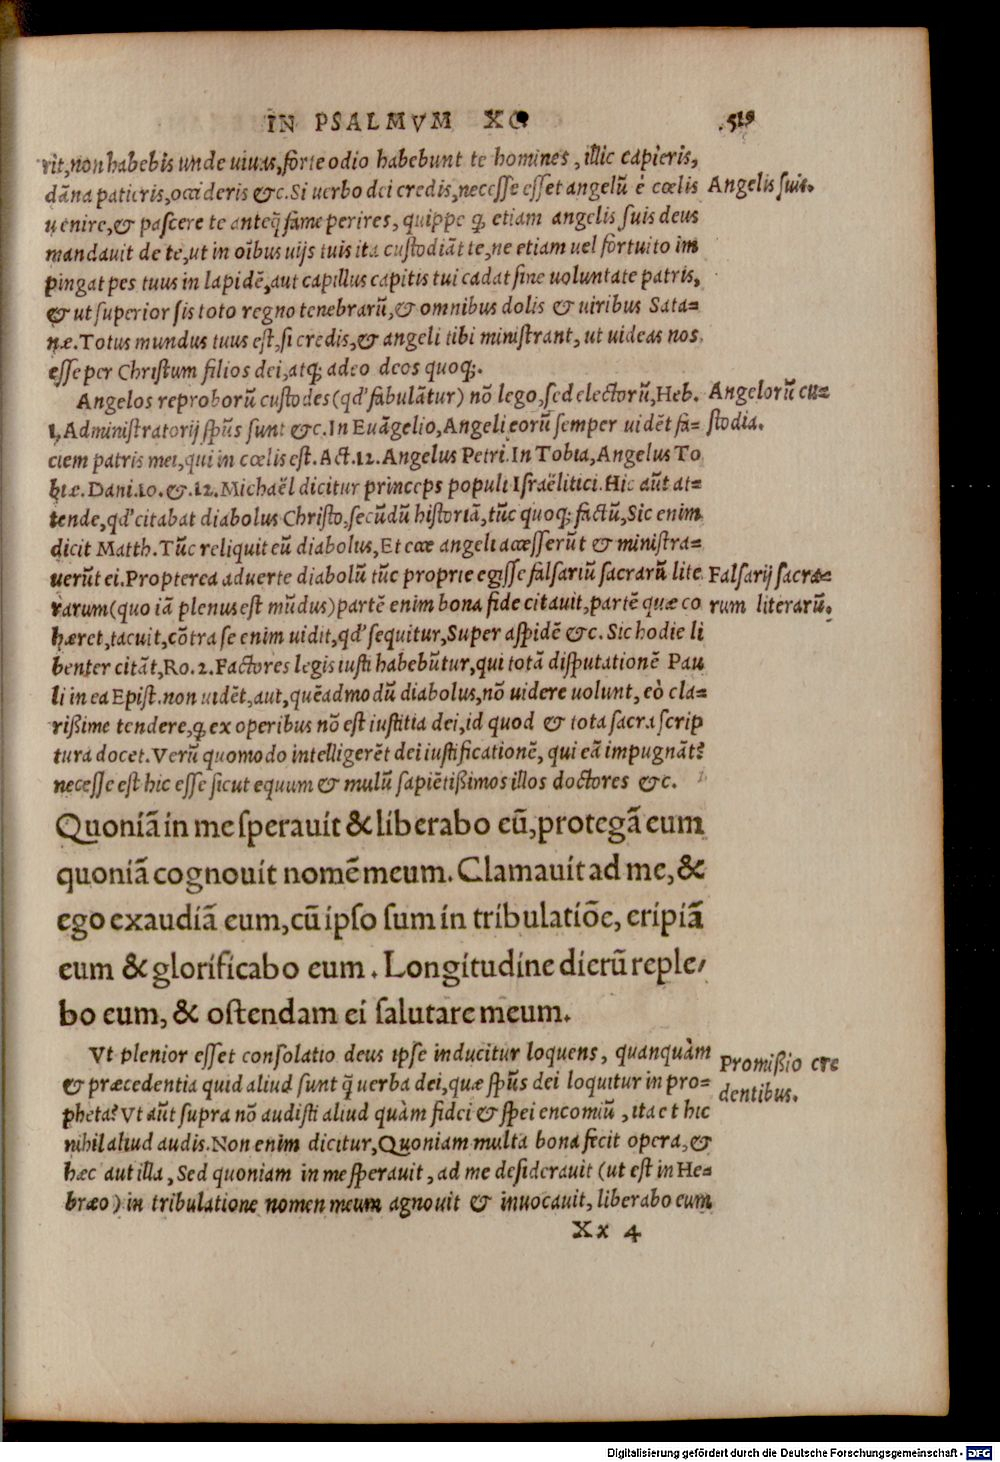 IN PSALMVM XC 519
rit, non habebis unde uiuas, forte odio habebunt te homines, illic capieris,
dāna patieris, occideris &c. Si uerbo dei credis, necesse esset angelū è cœlis
Angelis suis.
uenire, & pascere te anteq̃ fame perires, quippe q̨ etiam angelis suis deus
mandauit de te, ut in oībus uijs tuis ita custodiāt te, ne etiam uel fortuito im
pingat pes tuus in lapidē, aut capillus capitis tui cadat sine uoluntate patris,
& ut superior sis toto regno tenebrarū, & omnibus dolis & uiribus Sata=
næ. Totus mundus tuus est, si credis, & angeli tibi ministrant, ut uideas nos
esse per Christum filios dei, atq; adeo deos quoq;.
Angelos reproborū custodes (qd' fabulātur) nō lego, sed electorū, Heb.
Angelorū cu=
1, Administratorij sp̄us sunt &c. In Euāgelio, Angeli eorū semper uidēt fa=
stodia.
ciem patris mei, qui in cœlis est. Act. 12. Angelus Petri. In Tobia, Angelus To
biæ. Dani. 10. &. 12. Michaël dicitur princeps populi Israëlitici. Hic aūt at=
tende, qd' citabat diabolus Christo, secūdū historiā, tūc quoq; factū, Sic enim
dicit Matth. Tūc reliquit eū diabolus, Et ecce angeli accesserūt & ministra=
uerūt ei. Propterea aduerte diabolū tūc proprie egisse falsariū sacrarū lite
Falsarij sacra=
rarum (quo iā plenus est mūdus) partē enim bona fide citauit, partē quæ co
rum literarū.
hæret, tacuit, cōtra se enim uidit, qd' sequitur, Super aspidē &c. Sic hodie li
benter citāt, Ro. 2. Factores legis iusti habebūtur, qui totā disputationē Pau
li in ea Epist. non uidēt, aut, quēadmodū diabolus, nō uidere uolunt, eò cla=
rißime tendere, q̨ ex operibus nō est iustitia dei, id quod & tota sacra scrip
tura docet. Verū quomodo intelligerēt dei iustificationē, qui eā impugnāt?
necesse est hic esse sicut equum & mulū sapiētißimos illos doctores &c.
Quoniā in me sperauit & liberabo eū, protegā eum
quoniā cognouit nomē meum. Clamauit ad me, &
ego exaudiā eum, cū ipso sum in tribulatiōe, eripiā
eum & glorificabo eum. Longitudine dierū reple/
bo eum, & ostendam ei salutare meum.
Vt plenior esset consolatio deus ipse inducitur loquens, quanquàm
Promißio cre
& præcedentia quid aliud sunt q̃ uerba dei, quæ sp̄us dei loquitur in pro=
dentibus.
pheta? Vt aūt supra nō audisti aliud quàm fidei & spei encomiū, ita et hic
nihil aliud audis. Non enim dicitur, Quoniam multa bona fecit opera, &
hæc aut illa, Sed quoniam in me sperauit, ad me desiderauit (ut est in He=
bræo) in tribulatione nomen meum agnouit & inuocauit, liberabo eum
Xx 4
Digitalisierung gefördert durch die Deutsche Forschungsgemeinschaft - DFG